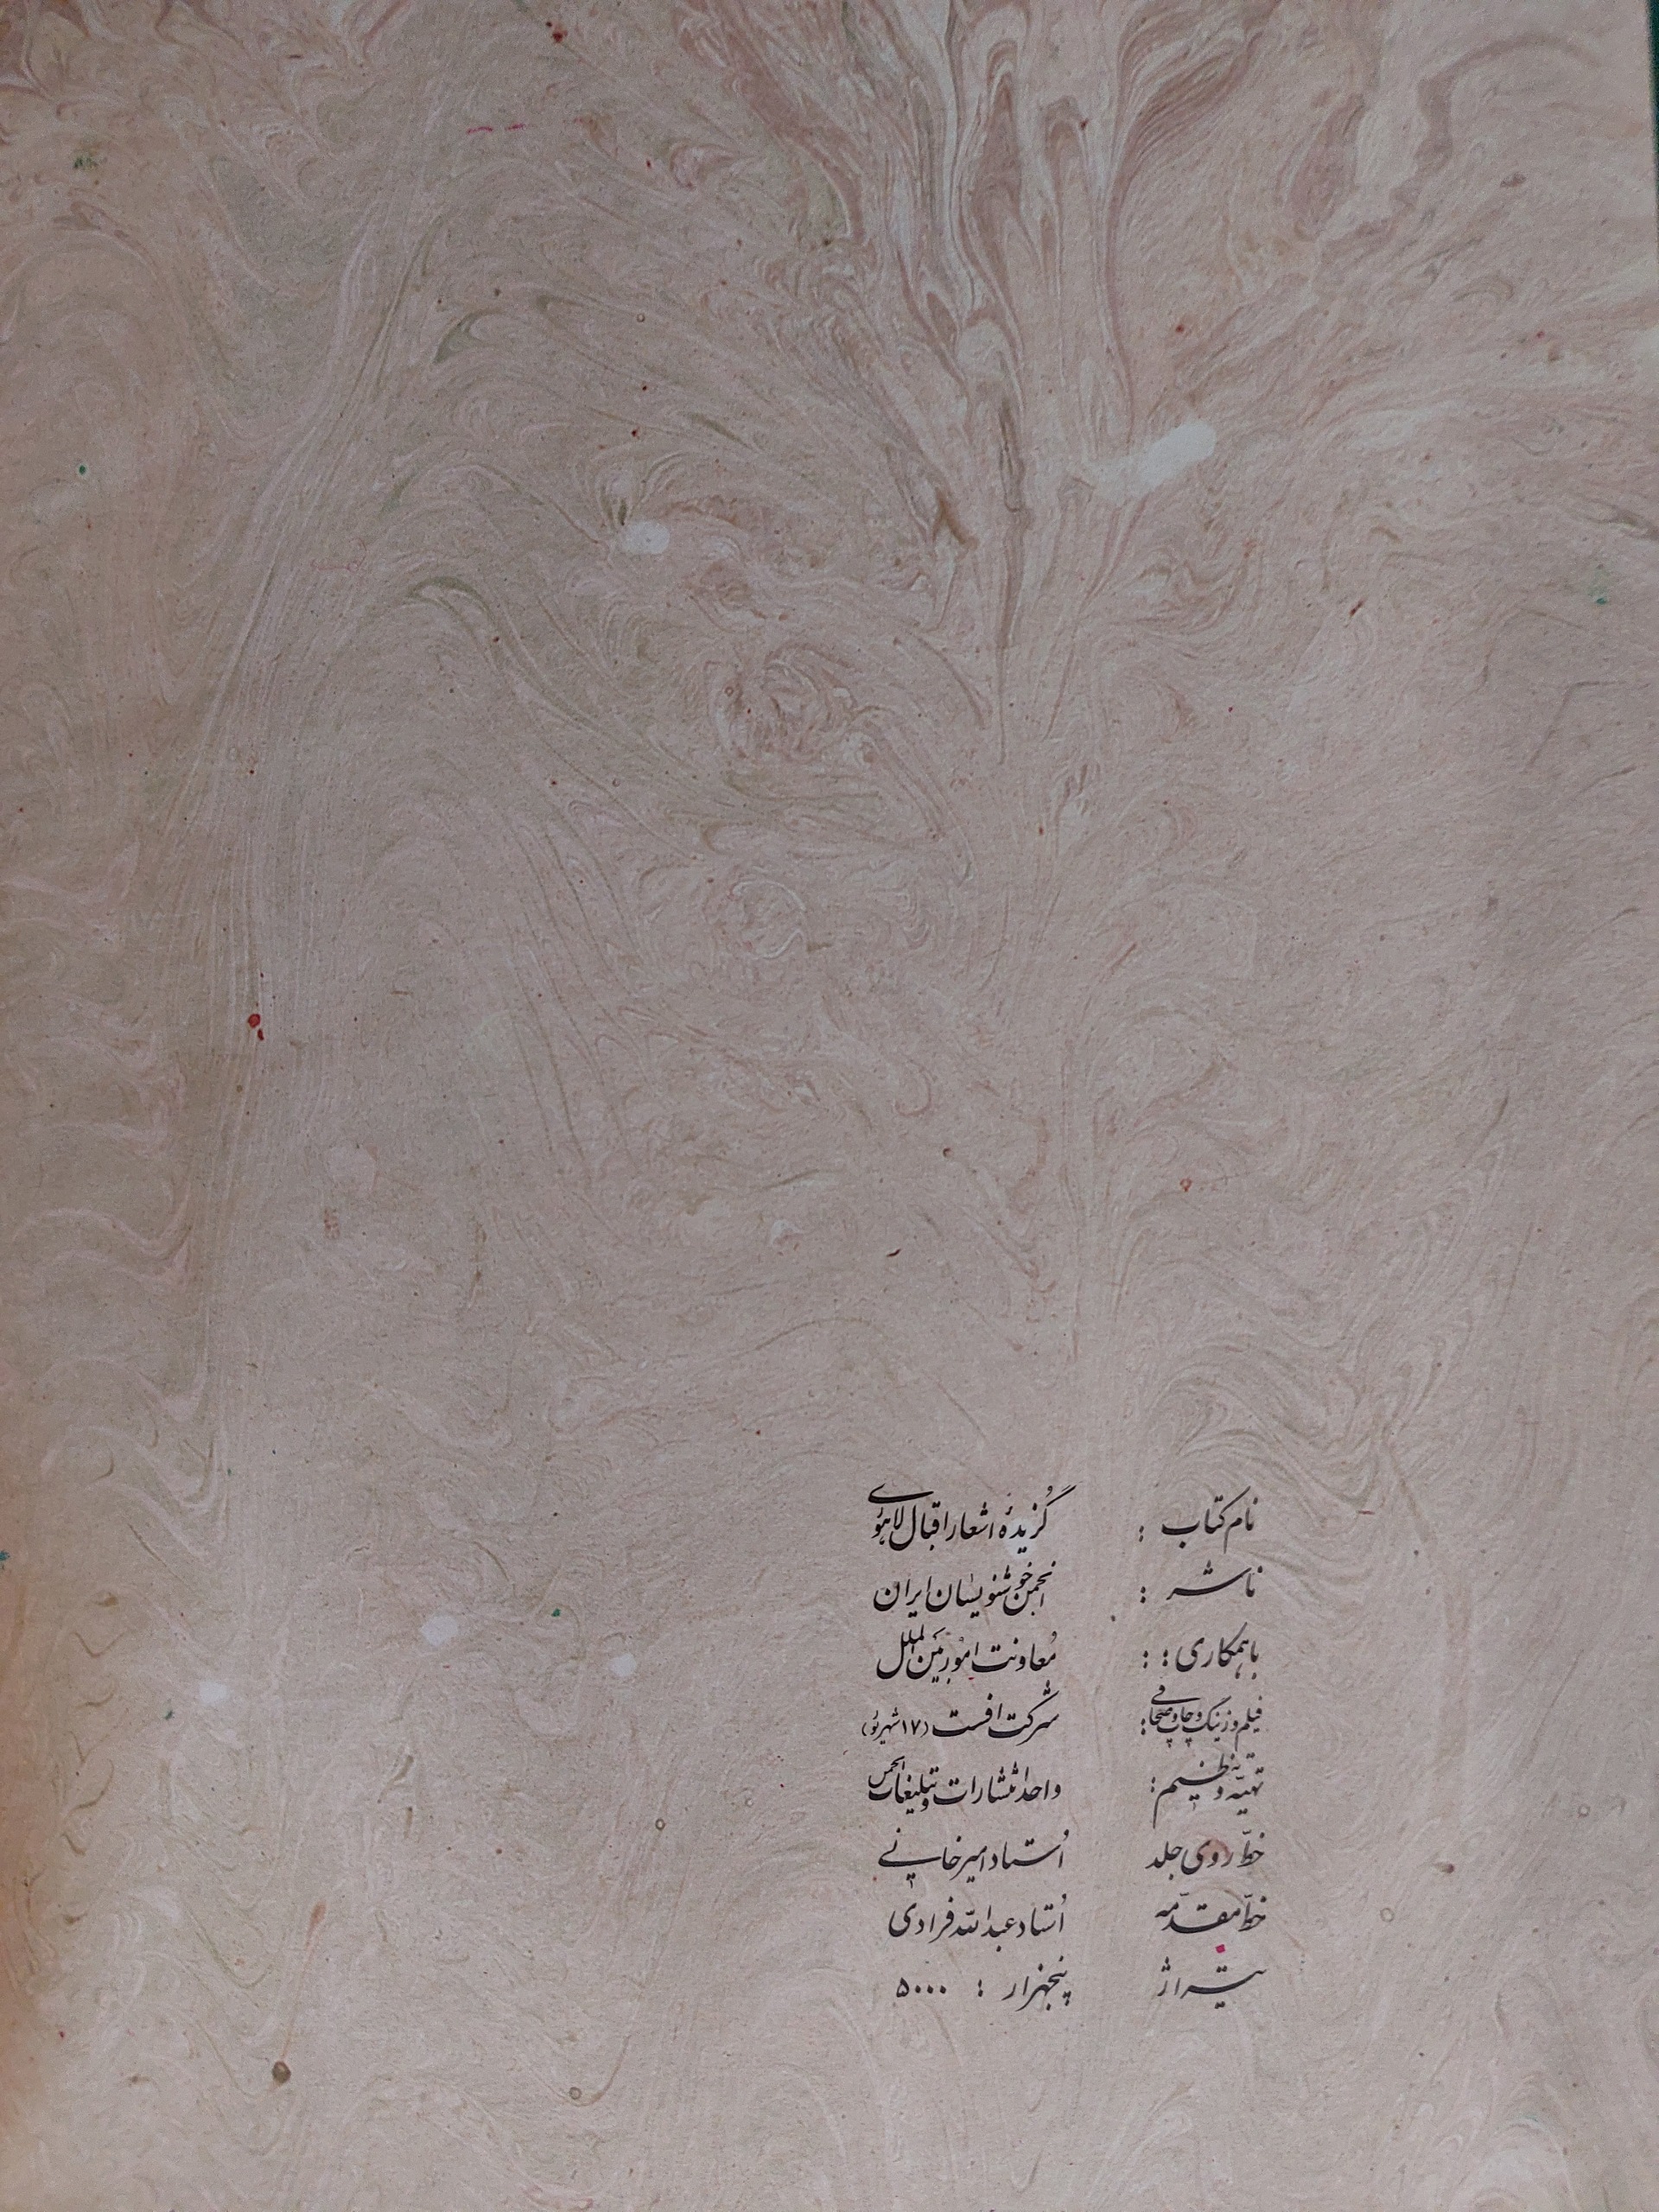 نام کتاب : گزیدهٔ اشعار اقبال لاهوری
ناشر : انجمن خوشنویسان ایران
با همکاری : : مُعاونت امور بین الملل
فیلم و زینک و چاپ و صحافی : شرکت افست (۱۷ شهریور)
تهیّه و تنظیم : واحد انتشارات و تبلیغات انجمن
خطّ روی جلد اُستاد امیرخانی
خطّ مقدّمه اُستاد عبدالله فرادی
تیراژ پنجهزار : ۵۰۰۰